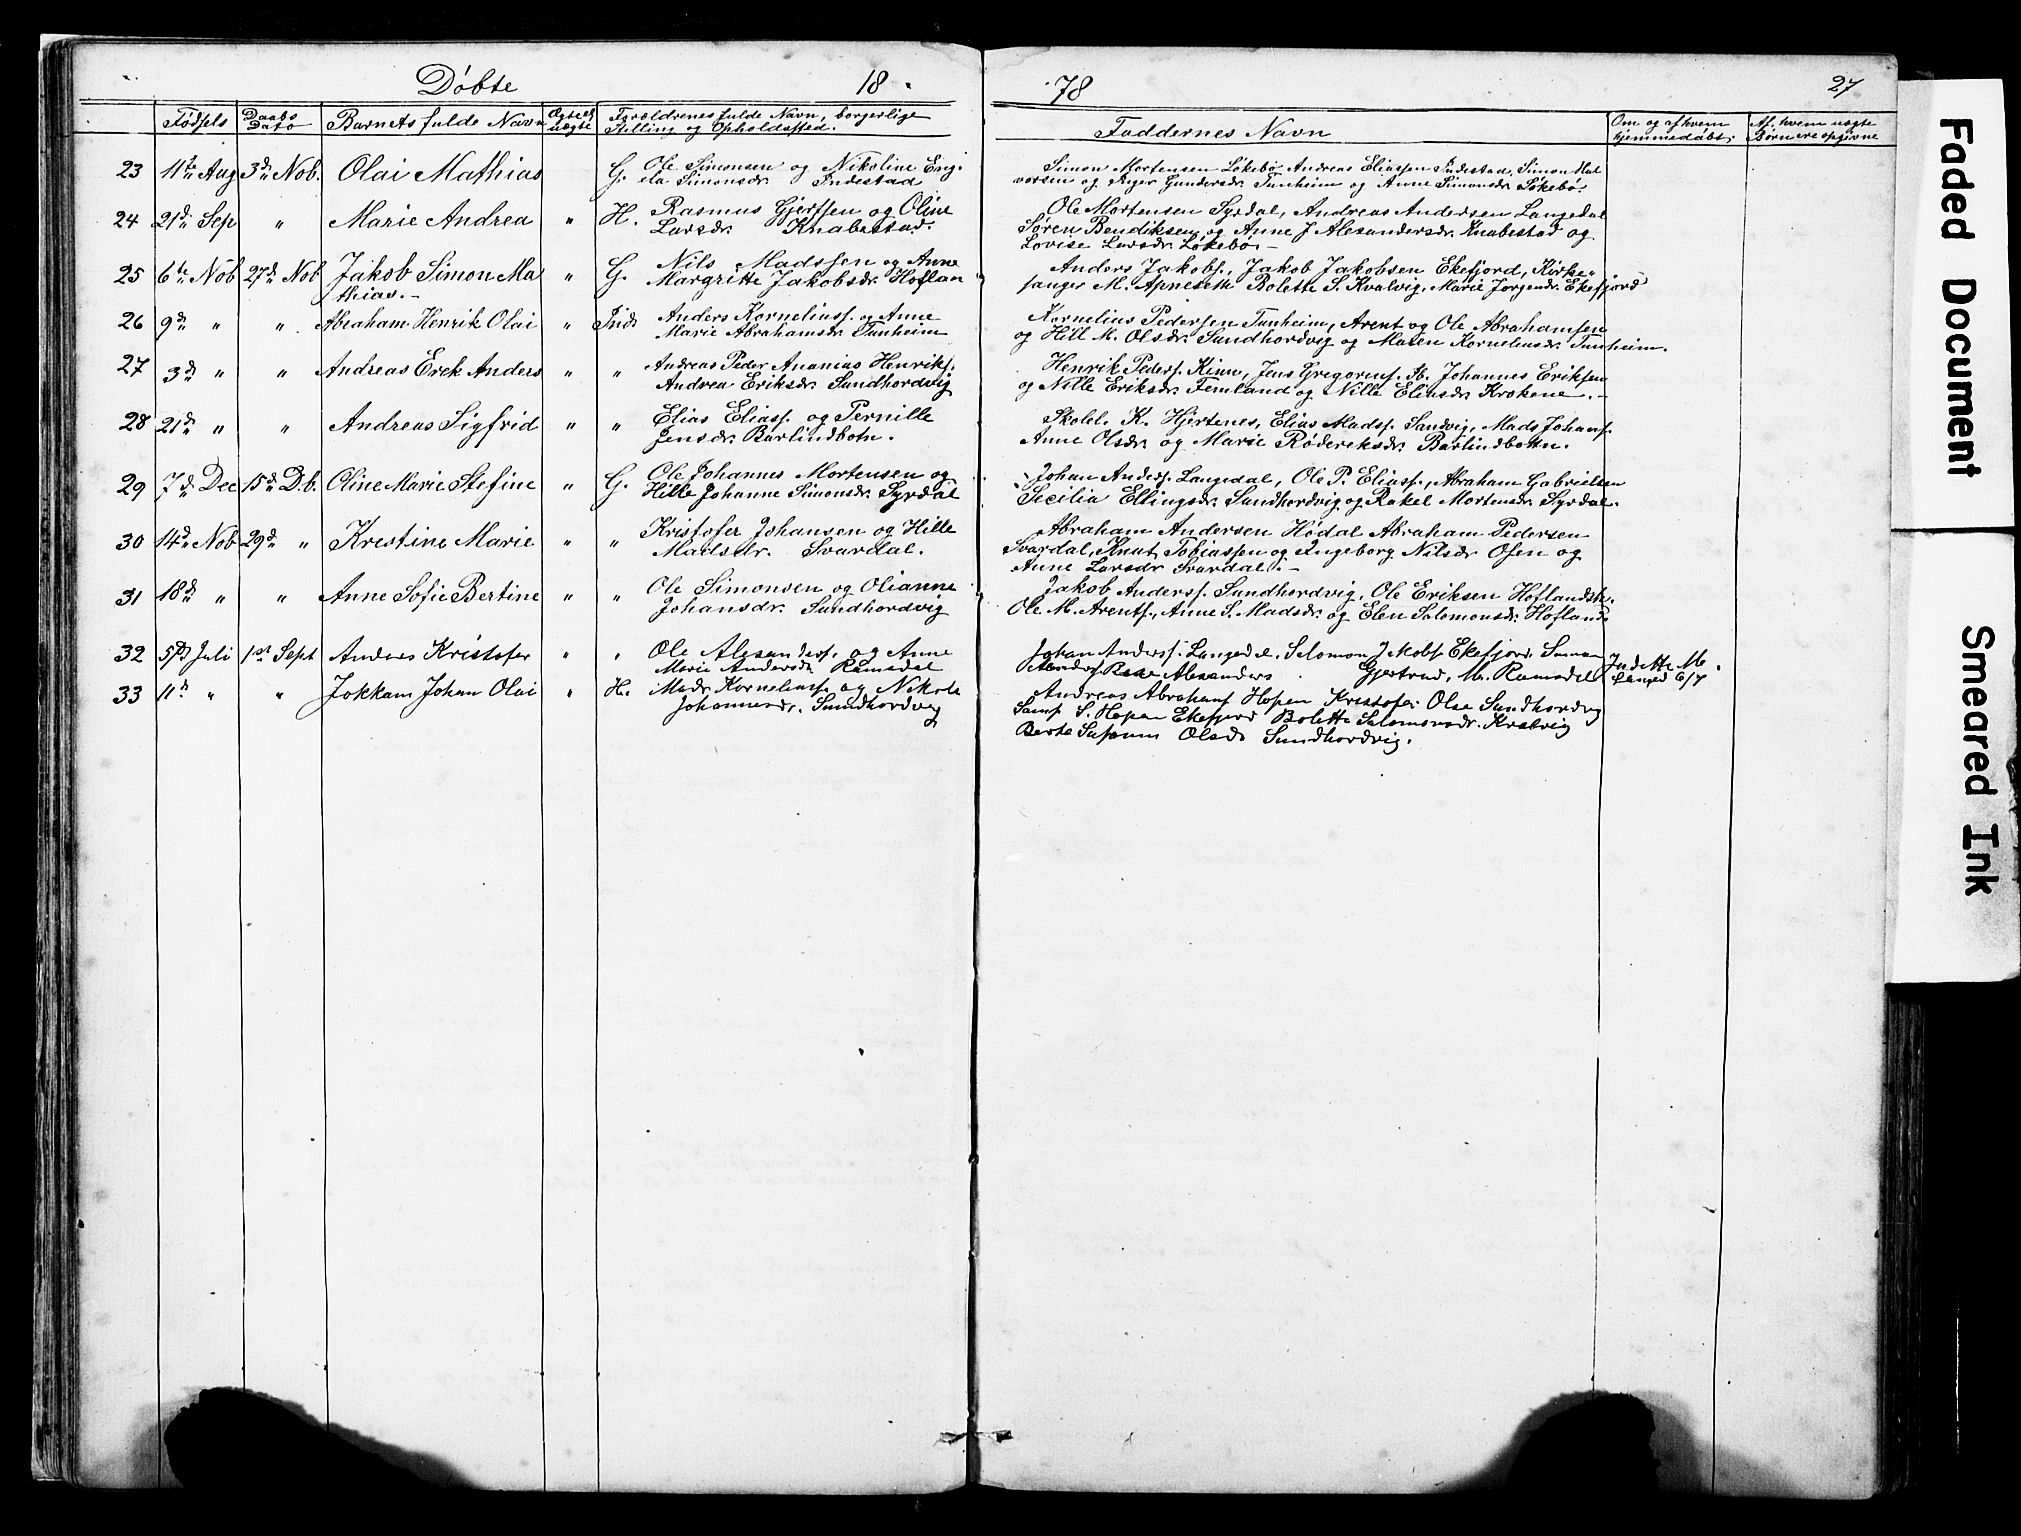 Døbte 18 78 27
Fødsels Daabs Dato Barnets fulde Navn Ægte el. uægte Forældrenes fulde Navn, borgerlige Stilling og Opholdssted. Faddernes Navn Om og af hvem hjemmedøbt. Af hvem uægte Børn ere opgivne
23 11te Aug 3die Nob. Olai Mathias G. Ole Simonsen og Nikoline Eng- Simon Mortensen Løkebø Andreas Eliassen Indestad, Simon Hal
ela Simonsdr. Indestad vorsen og Gundersdr. Tunheim og Anne Simonsdr Løkebø.
24 21de Sep " Marie Andrea " H. Rasmus Gjertsen og Oline Ole Mortensen Syrdal, Andreas Andersen Langedal
Larsdr. Knabestad. Søren Bendiksen og Anne J Alexandersdr. Knabestad og
Lovise Larsdr. Løkebø. -
25 6te Nob 27de Nob Jakob Simon Ma " G. Nils Madssen og Anne Anders Jakobs., Jakob Jakobsen Ekefjord, Kirke-
thias. - Margritte Jakobsdr. Hoflan sanger M. Apneseth Bolette S. Kvalvig, Marie Jørgendr. Ekefjord
26 9de " " Abraham Henrik Olai " Inds Anders Korneliuss. og Anne Kornelius Pedersen Tunheim, Arent og Ole Abrahamsen
Marie Abrahamsdr. Tunheim og Hill M. Olsdr. Sundhordvig og Maren Korneliusdr. Tunheim.
27 3de " " Andreas Erek Anders " " Andreas Peder Ananias Henriks. Henrik Peders. Kinn, Jens Gregorius. Johannes Eriksen
Andrea Eriksdr. Sundhordvig og Nille Eriksdr. Femland og Nille Eliasdr. Krokene. -
28 21de " " Andreas Sigfrid " " Elias Eliass. og Pernille Skolel. K. Hjertenes, Elias Madss. Sandvig, Mads Johans.
Jensdr. Barlindbotn. Anne Olsdr. og Marie Røderiksdr. Barlindbotten.
29 7de Dec 15de D.b. Oline Marie Stefine " G. Ole Johannes Mortensen og Johan Anders. Langedal, Ole P. Eliass., Abraham Gabrielsen
Hille Johanne Simonsdr. Syrdal Secilia Ellingsdr. Sundhordvig og Rakel Mortensdr. Syrdal.
30 14de Nob 29de " Krestine Marie " " Kristofer Johansen og Hille Abraham Andersen Hødal Abraham Pedersen
Madsdr. Svardal. Svardal, Knut Tobiassen og Ingeborg Nilsdr. Osen og
Anne Larsdr Svardal. -
31 18de " " Anne Sofie Bertine " " Ole Simonsen og Olianne Jakob Anders. Sundhordvig, Ole Eriksen Høflandst.
Johansdr. Sundhordvig Ole M. Arents., Anne S. Madsdr. og Elen Salomonsdr. Hofland
32 5te Juli 1st Sept Anders Kristofer " " Ole Alexanders. og Anne Johan Anders. Langedal, Salomon Jakobs Ekefjord, Simon
Marie Andersdr Ramsdal Anders. Alexanders Gjertrud M. Ramsdal Indette M. Langed 6/7
33 11te " " Jokkam Johan Olai " H. Mads Korneliuss. og Nikole Andreas Abrahams Hopen Kristofer Olse Sundhordvig
Johannesdr. Sundhordvig Sams S. Hopen Ekefjord Bolette Salomonsdr. Kvalvig
Berte Susanna Olsdr Sundhordvig.
Faded Document
Smeared Ink